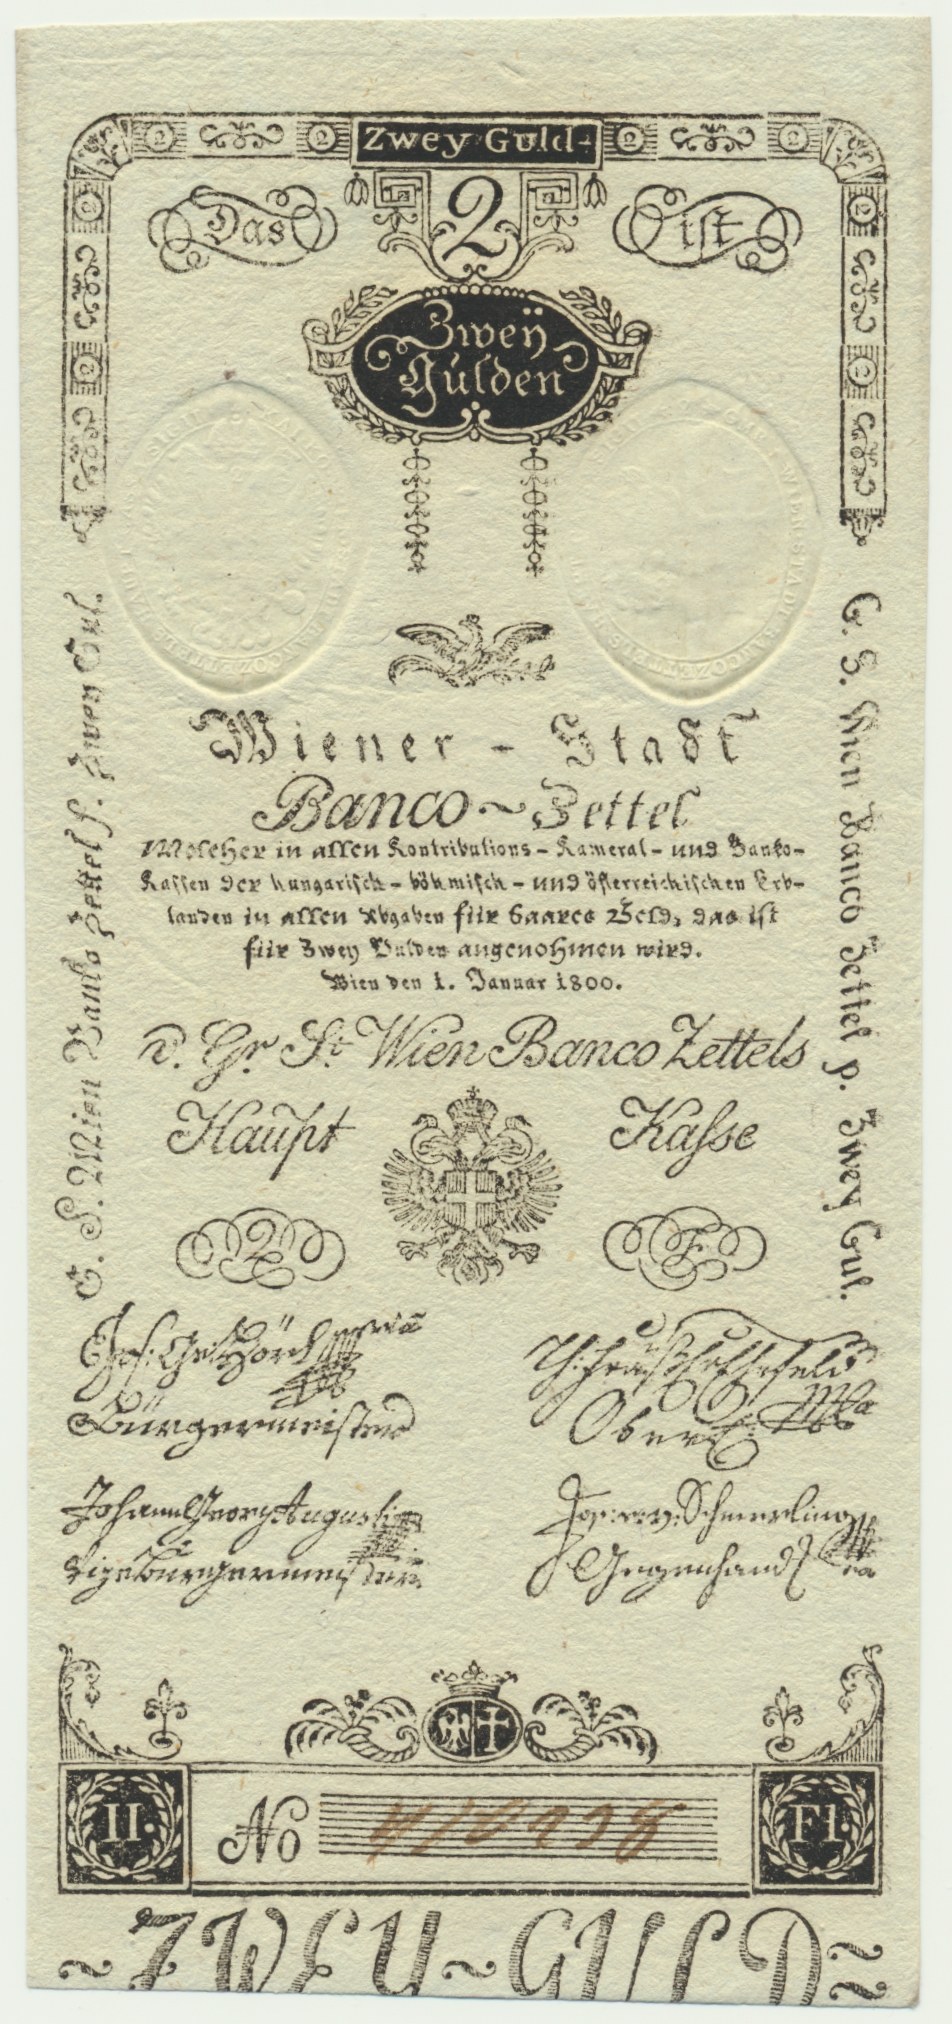 Zwey Guld-
Das 2 ist
Zweÿ
Gulden
Wiener - Stadt
Banco ~ Zettel
Welcher in allen Kontributions - Kameral - und Banko-
Kassen der hungarisch - böhmisch - und österreichischen Erb-
landen in allen Abgaben für baares Geld, das ist
für Zwey Gulden angenohmen wird.
Wien den 1. Januar 1800.
G. S. Wien Banko Zettel f. Zwey Gul.
G. S. Wien Banco Zettel p. Zwey Gul.
d. Gr. St. Wien Banco Zettels
Haupt Kasse
2 F
Bürgermeister
Ober
Johann Georg Augustin
Schmerling
Vizebürgermeister
Gegenhand
II. No Fl.
~ ZWEY ~ GULD ~